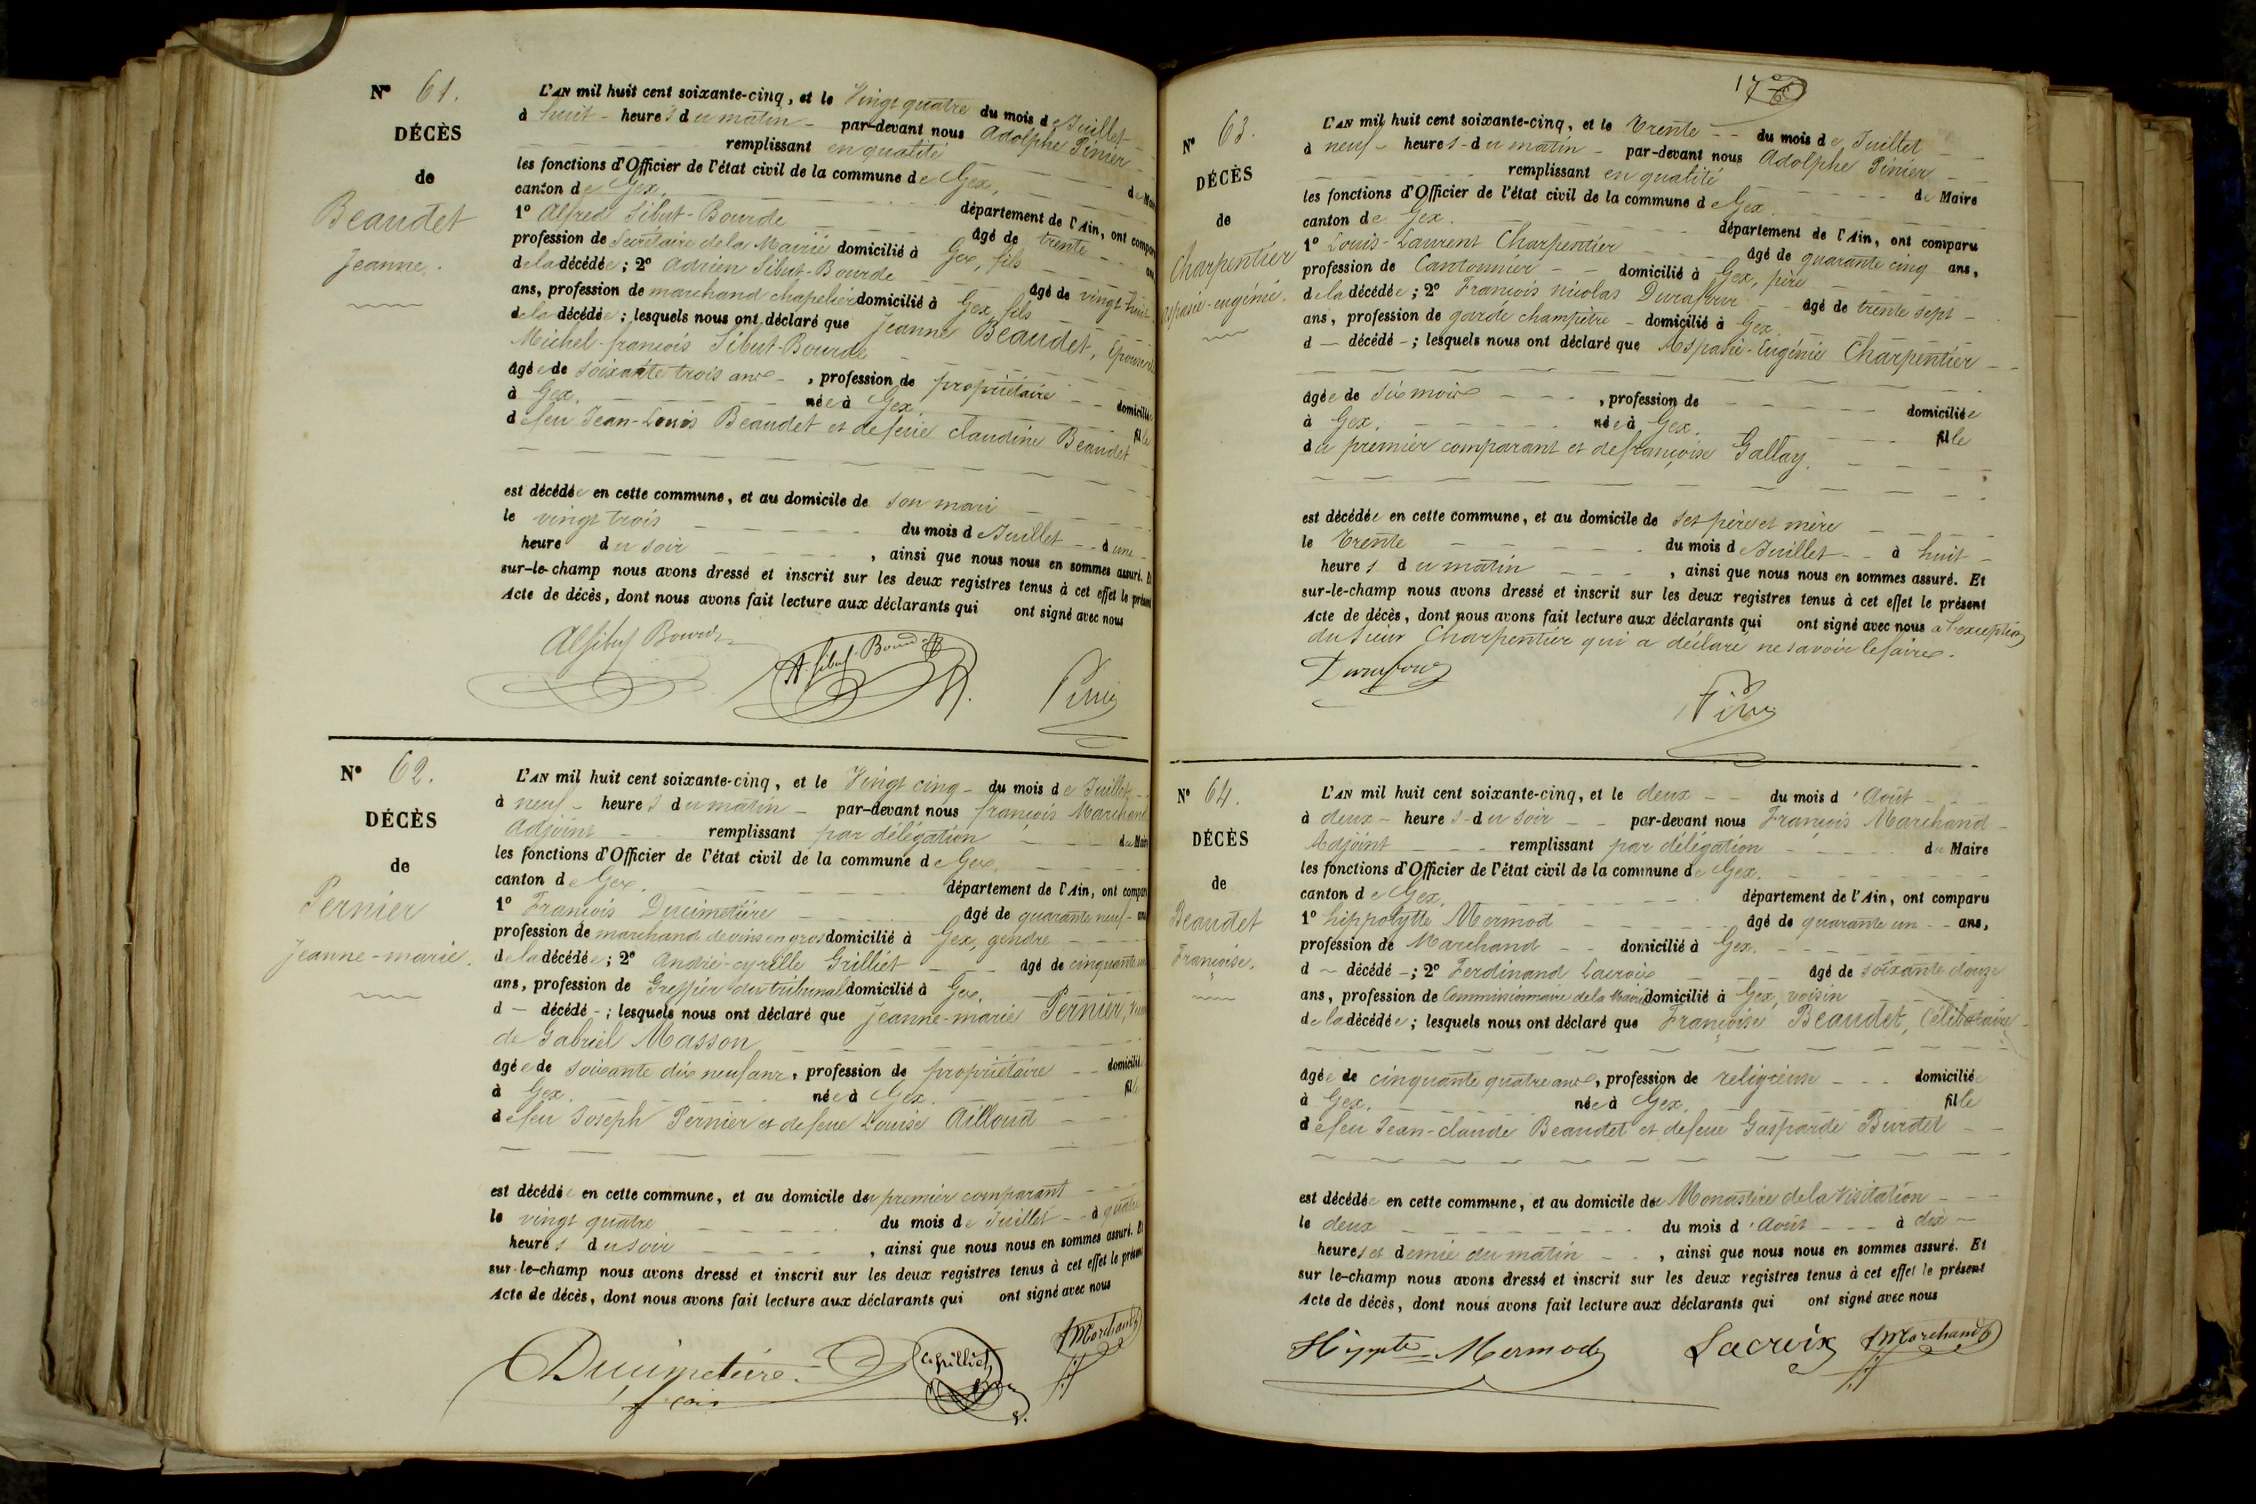 Nº 61.
DÉCÈS
de
Beaudet
Jeanne.
L'AN mil huit cent soixante-cinq, et le Vingt quatre du mois de Juillet
à huit heures du matin par-devant nous Adolphe Pinier
remplissant en qualité de Maire
les fonctions d'Officier de l'état civil de la commune de Gex,
canton de Gex, département de l'Ain, ont comparu
1º Alfred Sibut-Bourde âgé de trente ans
profession de Secrétaire de la Mairie domicilié à Gex, fils
de la décédée; 2º Adrien Sibut-Bourde âgé de vingt huit
ans, profession de marchand chapelier domicilié à Gex, fils
de la décédée; lesquels nous ont déclaré que Jeanne Beaudet, Epouse de
Michel-françois Sibut-Bourde
âgée de soixante trois ans, profession de propriétaire domiciliée
à Gex, née à Gex, fille
de feu Jean-Louis Beaudet et de feue Claudine Beaudet
est décédée en cette commune, et au domicile de son mari
le vingt trois du mois de Juillet à une
heure du soir, ainsi que nous nous en sommes assuré. Et
sur-le-champ nous avons dressé et inscrit sur les deux registres tenus à cet effet le présent
Acte de décès, dont nous avons fait lecture aux déclarants qui ont signé avec nous
Al Sibut Bourde A. Sibut-Bourde Pinier
Nº 62.
DÉCÈS
de
Pernier
Jeanne-marie.
L'AN mil huit cent soixante-cinq, et le Vingt cinq du mois de Juillet
à neuf heures du matin par-devant nous françois Marchand
Adjoint remplissant par délégation du Maire
les fonctions d'Officier de l'état civil de la commune de Gex,
canton de Gex, département de l'Ain, ont comparu
1º François Ducimetière âgé de quarante neuf ans
profession de marchand de vins en gros domicilié à Gex, gendre
de la décédée; 2º André-cyrille Grilliet âgé de cinquante
ans, profession de Greffier du tribunal domicilié à Gex,
d — décédé -; lesquels nous ont déclaré que Jeanne-marie Pernier, Veuve
de Gabriel Masson
âgée de soixante dix neuf ans, profession de propriétaire domiciliée
à Gex, née à Gex, fille
de feu Joseph Pernier et de feue Louise Ailloud
est décédée en cette commune, et au domicile du premier comparant
le vingt quatre du mois de Juillet à quatre
heures du soir, ainsi que nous nous en sommes assuré. Et
sur-le-champ nous avons dressé et inscrit sur les deux registres tenus à cet effet le présent
Acte de décès, dont nous avons fait lecture aux déclarants qui ont signé avec nous
Ducimetière Grilliet fMarchand
fçois
17
Nº 63.
DÉCÈS
de
Charpentier
aspasie-eugénie.
L'AN mil huit cent soixante-cinq, et le Trente du mois de Juillet
à neuf heures du matin par-devant nous Adolphe Pinier
remplissant en qualité de Maire
les fonctions d'Officier de l'état civil de la commune de Gex
canton de Gex. département de l'Ain, ont comparu
1º Louis-Laurent Charpentier âgé de quarante cinq ans,
profession de Cantonnier domicilié à Gex, père
de la décédée; 2º François nicolas Durafour âgé de trente sept
ans, profession de garde champêtre domicilié à Gex
d — décédé -; lesquels nous ont déclaré que Aspasie-Eugénie Charpentier
âgée de Six mois, profession de domiciliée
à Gex, née à Gex. fille
du premier comparant et de françoise Gallay.
est décédée en cette commune, et au domicile de ses père et mère
le Trente du mois de Juillet à huit
heures du matin, ainsi que nous nous en sommes assuré. Et
sur-le-champ nous avons dressé et inscrit sur les deux registres tenus à cet effet le présent
Acte de décès, dont nous avons fait lecture aux déclarants qui ont signé avec nous à l'exception
du Sieur Charpentier qui a déclaré ne savoir le faire.
Durafour Pinier
Nº 64.
DÉCÈS
de
Beaudet
Françoise.
L'AN mil huit cent soixante-cinq, et le deux du mois d'Août
à deux heures du soir par-devant nous François Marchand
Adjoint remplissant par délégation du Maire
les fonctions d'Officier de l'état civil de la commune de Gex.
canton de Gex, département de l'Ain, ont comparu
1º hippolytte Mermod âgé de quarante un ans,
profession de Marchand domicilié à Gex.
d ~ décédé -; 2º Ferdinand Lacroix âgé de soixante douze
ans, profession de Commissionnaire de la Mairie domicilié à Gex, voisin
de la décédée; lesquels nous ont déclaré que Françoise Beaudet, Célibataire
âgée de cinquante quatre ans, profession de religieuse domiciliée
à Gex, née à Gex. fille
de feu Jean-claude Beaudet et de feue Gasparde Burdet
est décédée en cette commune, et au domicile du Monastère de la Visitation
le deux du mois d'Août à dix
heures et demie du matin, ainsi que nous nous en sommes assuré. Et
sur le-champ nous avons dressé et inscrit sur les deux registres tenus à cet effet le présent
Acte de décès, dont nous avons fait lecture aux déclarants qui ont signé avec nous
Hippte Mermod Lacroix fMarchand